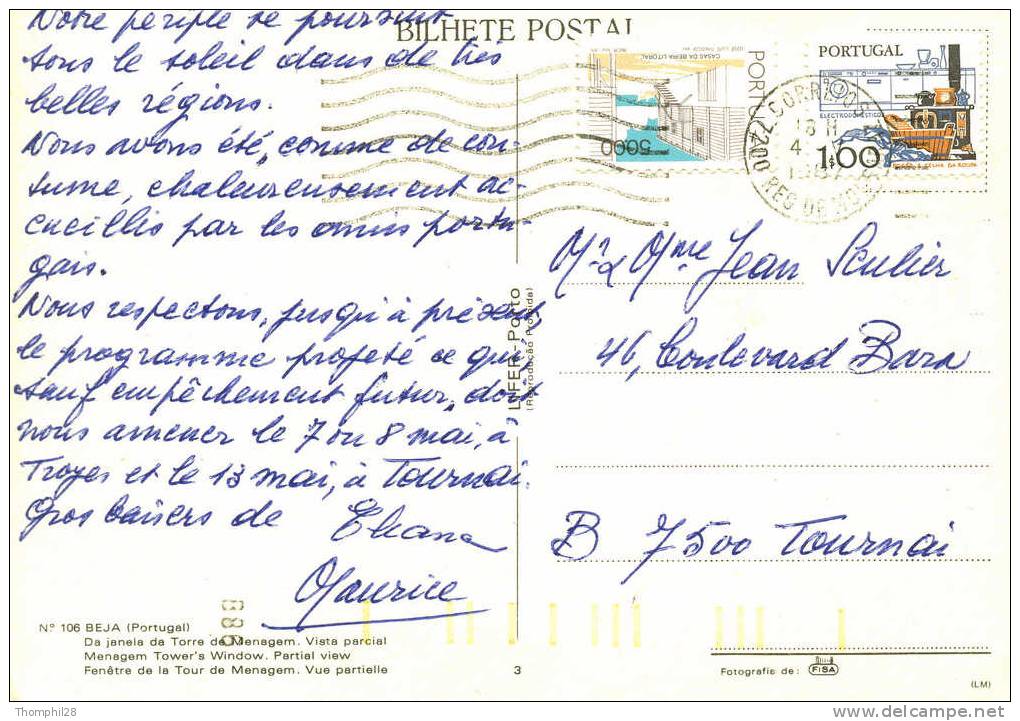 Notre périple se poursuit
sous le soleil dans de très
belles régions.
Nous avons été, comme de cou-
tume, chaleureusement ac-
cueillis par les amis portu-
gais.
Nous respectons, jusqu'à présent
le programme projeté ce qui
sauf empêchement futur, doit
nous amener le 7 ou 8 mai, à
Troyes et le 13 mai, à Tournai.
Gros baisers de
Eliana
Maurice
Nº 106 BEJA (Portugal)
Da janela da Torre de Menagem. Vista parcial
Menagem Tower's Window. Partial view
Fenêtre de la Tour de Menagem. Vue partielle
BILHETE POSTAL
LIFER - Porto
(Reprodução Proibida)
3
PORTUGAL
CASAS DA BEIRA LITORAL
5000
PORTUGAL
ELECTRODOMÉSTICO
1$00
CORREIOS
7200
REG. DE MON
Mr & Mme Jean Sculier
46, Boulevard Bara
B 7500 Tournai
Fotografia de: FISA
(LM)
Delcampe.net
Thomasphil28